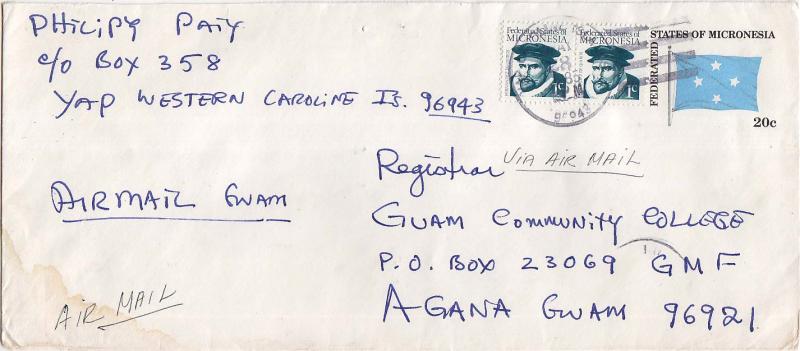 PHILIPY PAIY
c/o BOX 358
YAP WESTERN CAROLINE IS. 96943
Federated States of
MICRONESIA
1c
Federated States of
MICRONESIA
1c
FEDERATED STATES OF MICRONESIA
20c
VIA AIR MAIL
AIRMAIL GUAM
Registrar
GUAM COMMUNITY COLLEGE
P.O. BOX 23069 GMF
AGANA GUAM 96921
AIR MAIL